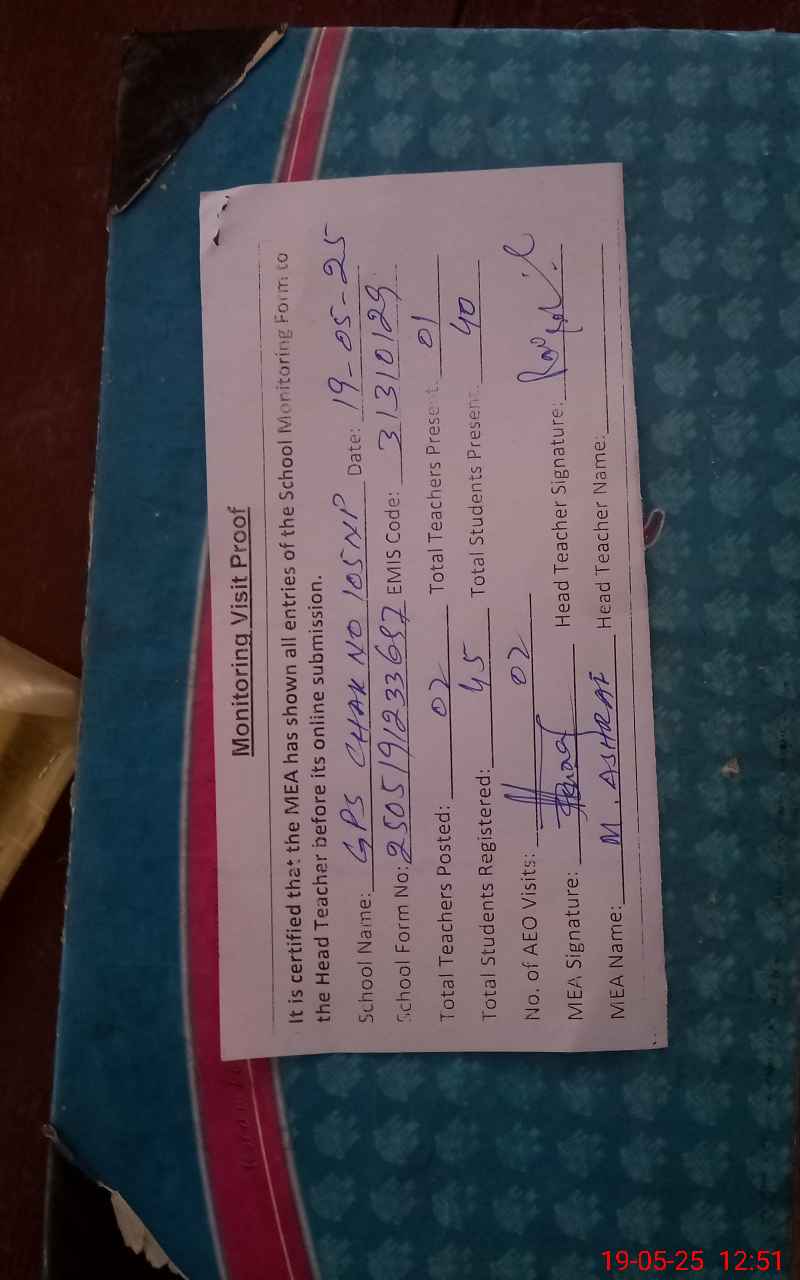 Monitoring Visit Proof
It is certified that the MEA has shown all entries of the School Monitoring Form to
the Head Teacher before its online submission.
School Name: GPS CHAK NO 105 NP Date: 19-05-25
School Form No: 2505191233697 EMIS Code: 31310129
Total Teachers Posted: 02 Total Teachers Present: 01
Total Students Registered: 45 Total Students Present: 40
No. of AEO Visits: 02
MEA Signature: Head Teacher Signature:
MEA Name: M. ASHRAF Head Teacher Name:
19-05-25 12:51